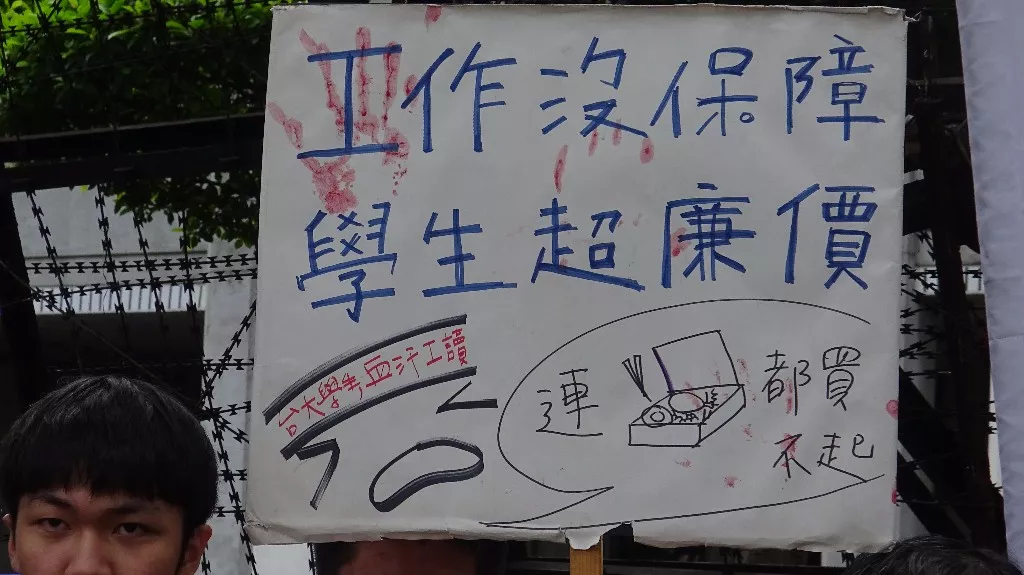 工作沒保障
學生超廉價
台大學生血汗工讀
連 都買
不起